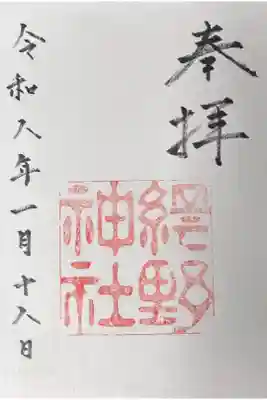 奉拝
神社
令和八年一月十八日